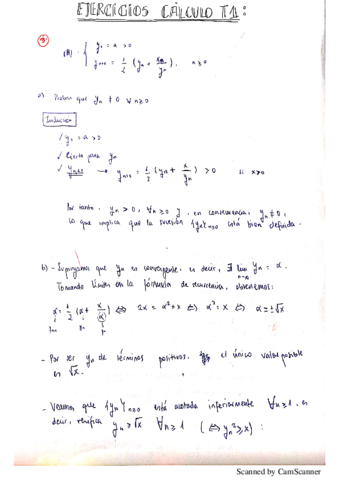 EJERCICIOS CÁLCULO T1:
③
(*) { y₀ = a > 0
yₙ₊₁ = 1/2 (yₙ + x/yₙ), n≥0
a) Probar que yₙ ≠ 0 ∀n≥0
Inducción
✓ y₀ = a > 0
✓ Cierto para yₙ
✓ yₙ₊₁ → yₙ₊₁ = 1/2 (yₙ + x/yₙ) > 0 si x>0
Por tanto, yₙ > 0, ∀n≥0 y, en consecuencia, yₙ ≠ 0,
lo que implica que la sucesión {yₙ}ₙ≥0 está bien definida.
b) - Supongamos que yₙ es convergente, es decir, ∃ lim yₙ = α.
Tomando límites en la fórmula de recurrencia, obtenemos:
α = 1/2 (α + x/α) ⇔ 2α = α² + x ⇔ α² = x ⇔ α = ±√x
- Por ser yₙ de términos positivos, el único valor posible
es √x.
- Veamos que {yₙ}ₙ≥0 está acotada inferiormente ∀n≥1, es
decir, verifica yₙ ≥ √x ∀n≥1 (⇔ yₙ² ≥ x):
Scanned by CamScanner